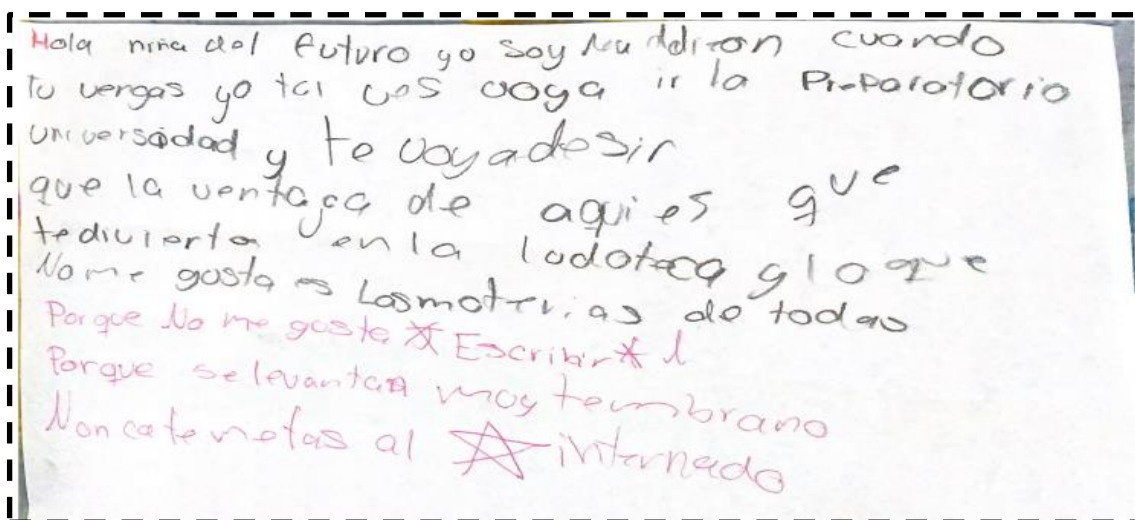 Hola nina del futuro yo soy cuando
tu vengas yo tal ves voya ir la Preparatorio
universidad y te voyadesir
que la ventaga de aqui es que
tedivierta en la ludoteca y lo que
No me gosta es Las materias de todas
Porque No me gosta Escribir
Porque se levantan moy tembrano
Noncate metas al internado